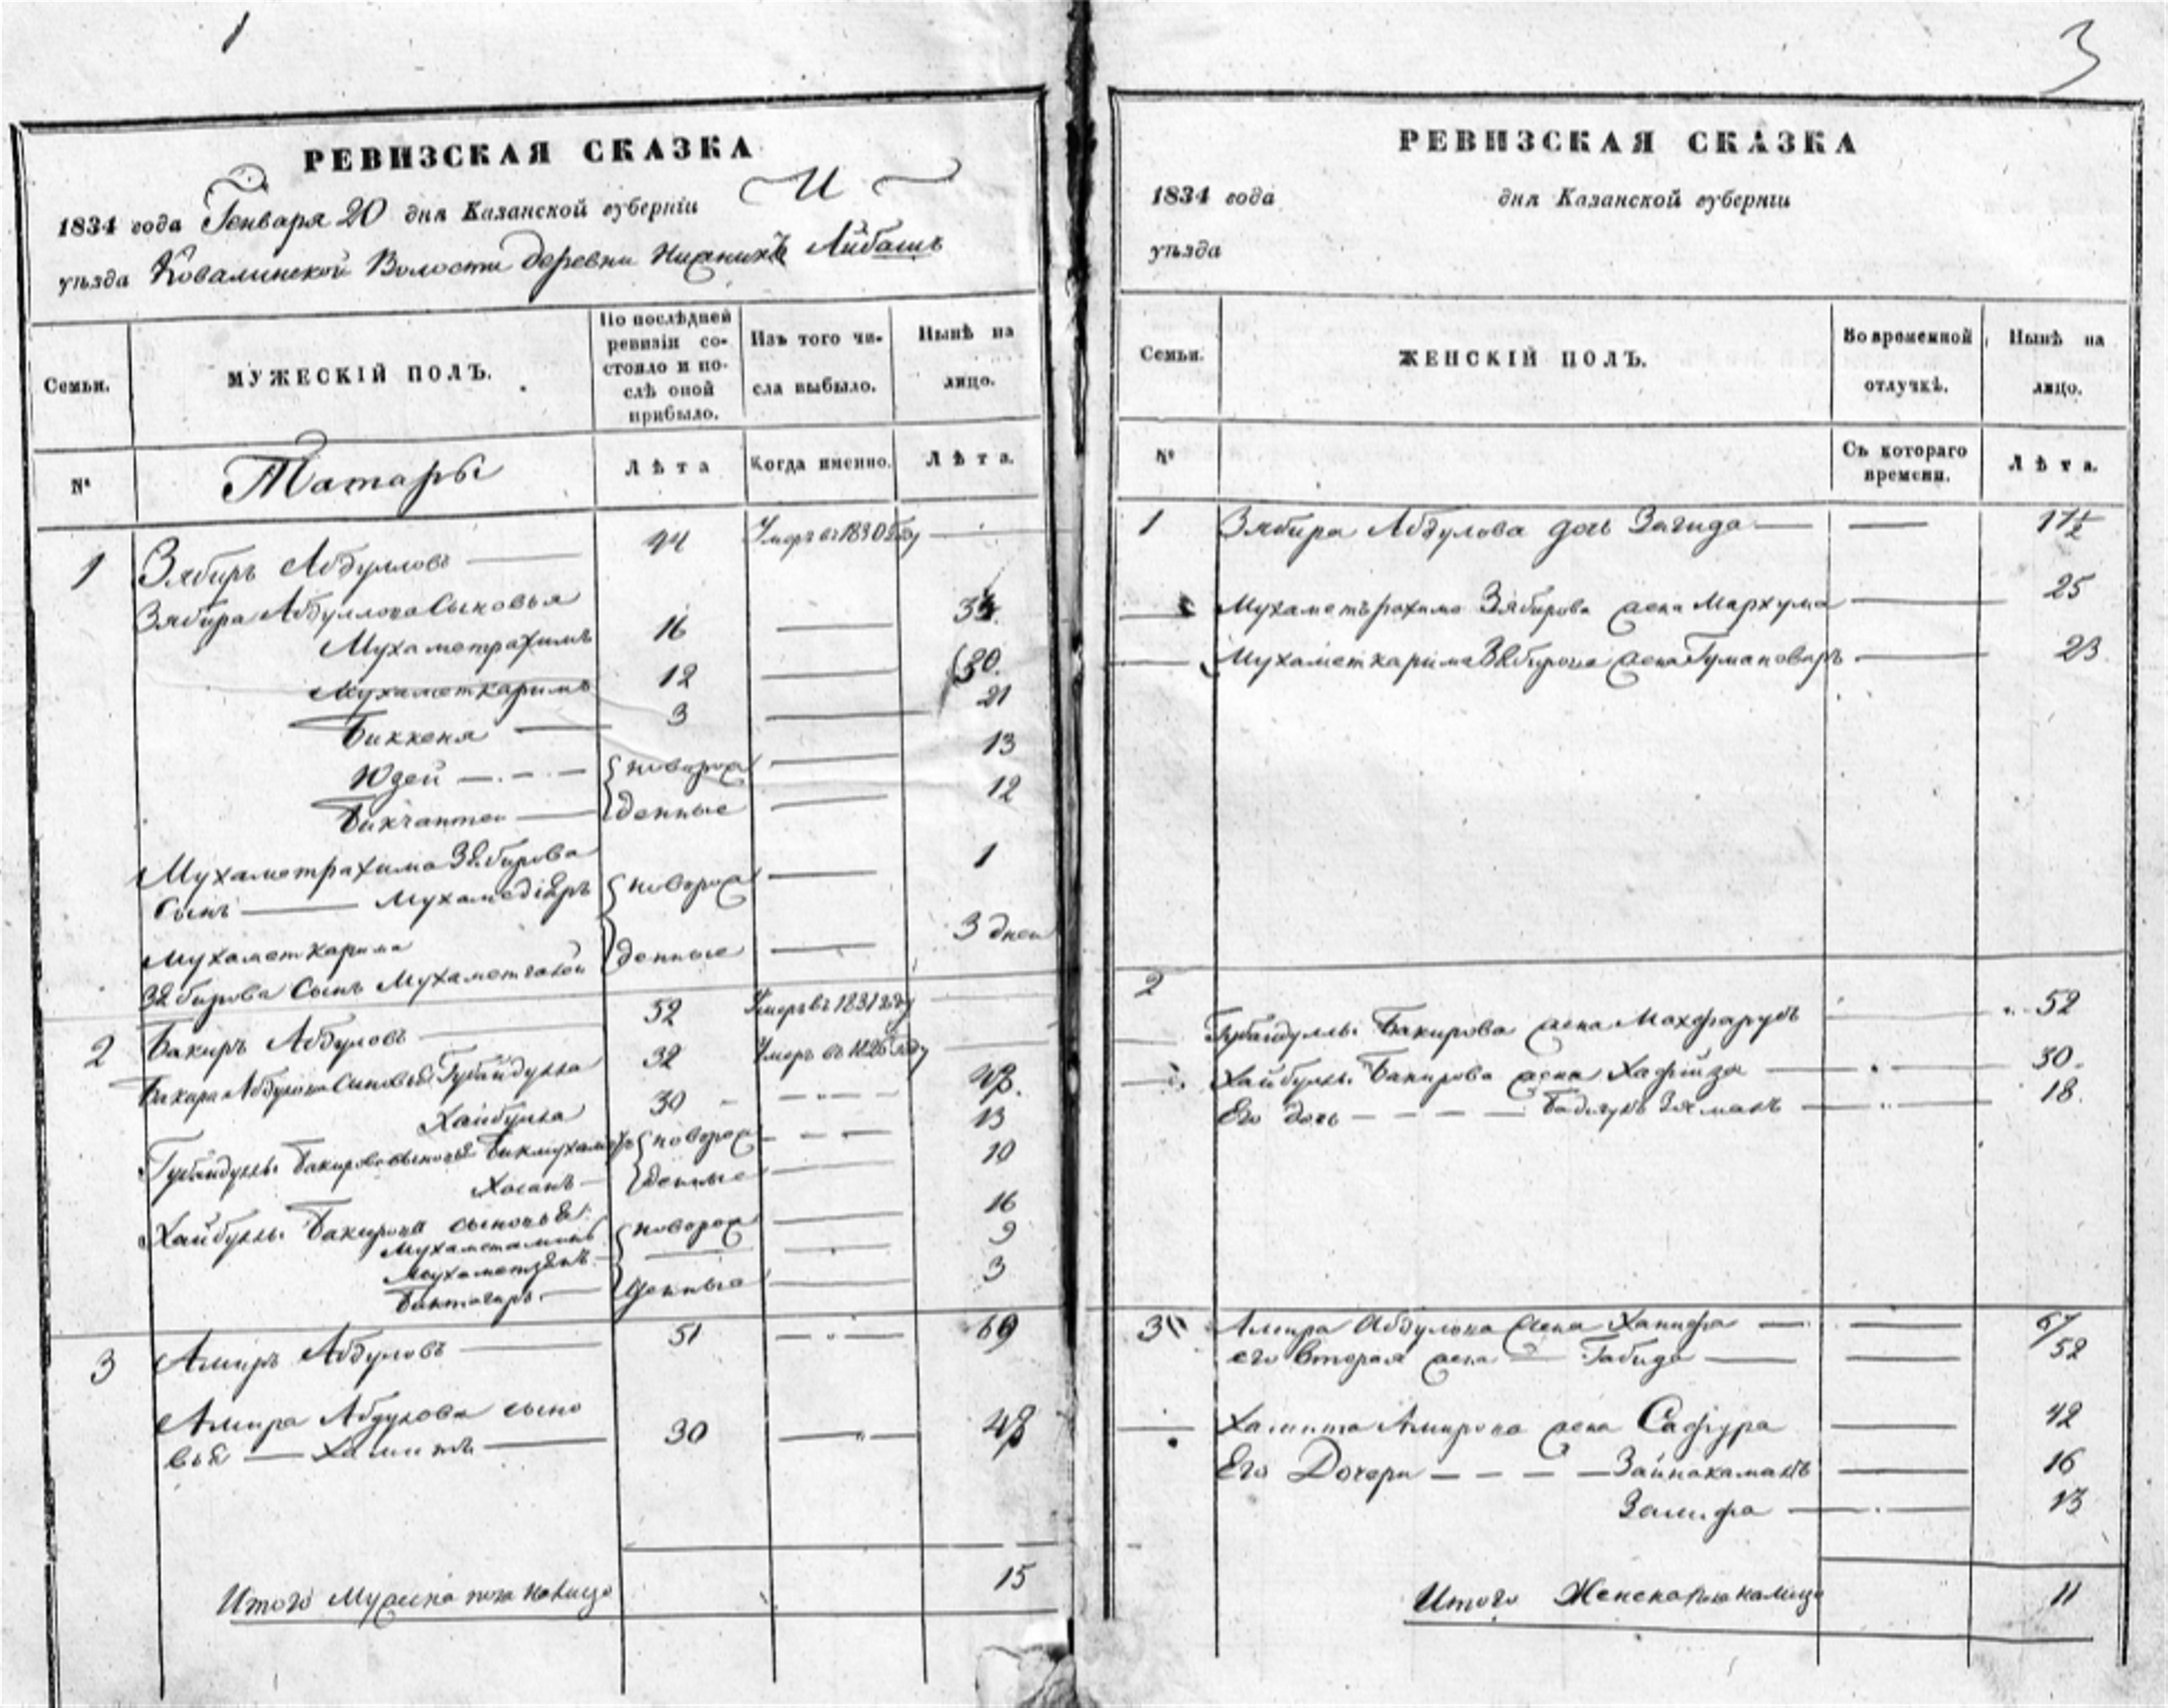 1
РЕВИЗСКАЯ СКАЗКА
1834 года Генваря 20 дня Казанской губерніи
уѣзда Ковалинской Волости деревни Нижнихъ Айбашъ
Семьи.
МУЖЕСКІЙ ПОЛЪ.
По послѣдней ревизіи состояло и послѣ оной прибыло.
Изъ того числа выбыло.
Нынѣ на лицо.
№
Татары
Лѣта
Когда именно.
Лѣта.
1 Зябиръ Абдуловъ 44 Умеръ въ 1830 году
Зябира Абдулова Сыновья
Мухаметрахимъ 16
Мухаметкаримъ 12 30.
Биккеня 3 21
Юзей новорож 13
Бикчантеи денные 12
Мухаметрахима Зябирова
Сынъ Мухамедіяръ новорож 1
Мухаметкарима денные 3 дней
Зябирова Сынъ
2 Бакиръ Абдуловъ 52 Умеръ въ 1831 году
Бакира Абдулова Сыновья Губайдулла 32 Умеръ въ 1826 году
Хайбулла 30
Губайдуллы Бакирова сыновья новорож 13
Хасанъ денные 10
Хайбуллы Бакирова сыновья новорож 16
9
денные 3
3 Амиръ Абдуловъ 51 69
Амира Абдулова сыно
вья Хамитъ 30 48
Итого Мужска пола налицо 15
3
РЕВИЗСКАЯ СКАЗКА
1834 года дня Казанской губерніи
уѣзда
Семьи.
ЖЕНСКІЙ ПОЛЪ.
Во временной отлучкѣ.
Нынѣ на лицо.
№
Съ котораго времени.
Лѣта.
1 Зябира Абдулова дочь Загида
Мухаметърахима Зябирова жена Мархума 25
Мухаметкарима Зябирова жена 23
2
Губайдуллы Бакирова жена 52
Хайбуллы Бакирова жена Хафиза 30.
Его дочь 18.
3 Амира Абдулова жена Ханифа 67
его вторая жена Габида 52
Хамита Амирова жена Сафура 42
Его Дочери 16
Залифа 13
Итого Женска пола налицо 11